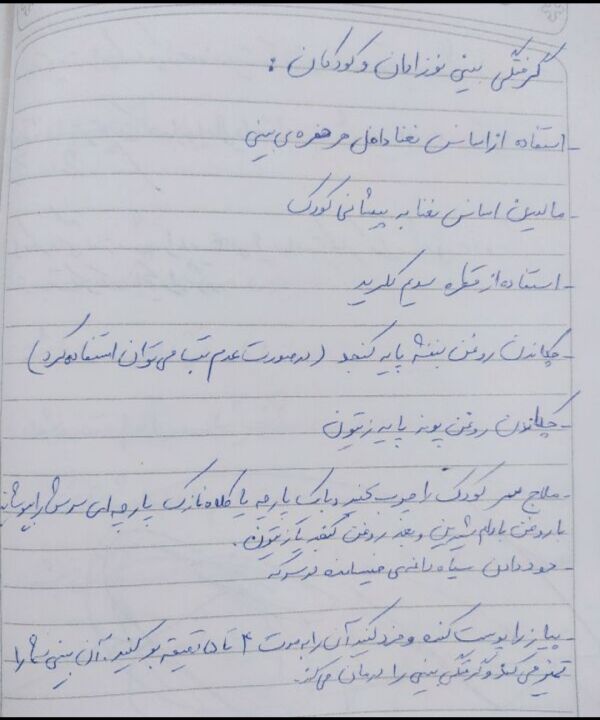 گرفتگی بینی نوزادان و کودکان :
- استفاده از اسانس نعنا داخل حفره‌ی بینی
- مالیدن اسانس نعنا به پیشانی کودک
- استفاده از قطره سدیم کلرید
- چکاندن روغن بنفشه پایه کنجد (در صورت عدم تب می توان استفاده کرد)
- چکاندن روغن پونه پایه زیتون
- ملاج سر کودک را چرب کنید و با یک پارچه یا کلاه نازک پارچه ای سرش را بپوشانید
با روغن بادام شیرین و بعد روغن کنجد یا زیتون.
- دود دادن سیاه دانه ی خیسانده در سرکه
- پیاز را پوست کنده و خرد کنید آن را به مدت ۴ تا ۵ دقیقه بو کنید. آن بینی شما را
تمیز می کند و گرفتگی بینی را درمان می کند.